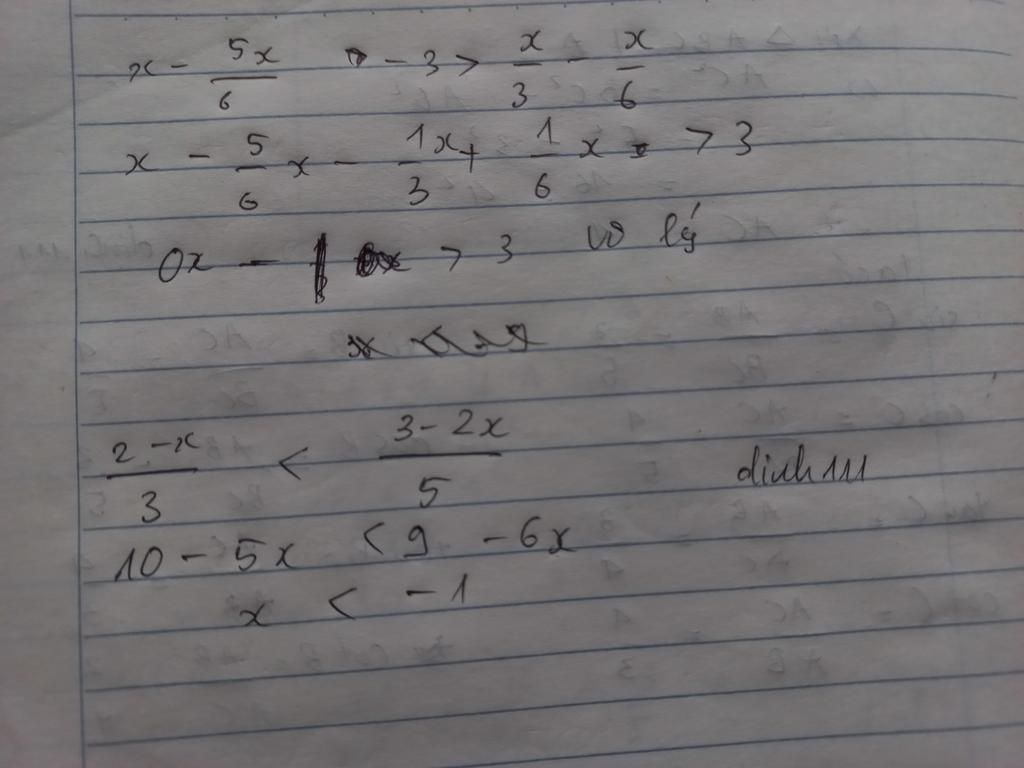 x - 5x/6 - 3 > x/3 - x/6
x - 5/6 x - 1/3 x + 1/6 x > 3
0x - > 3 vô lý
2 - x/3 < 3 - 2x/5
10 - 5x < 9 - 6x
x < -1